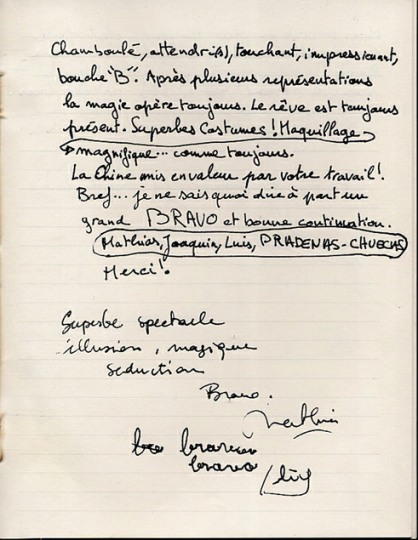 Chamboulé, attendri(s), touchant, impressionant,
bouche "B". Après plusieurs représentations
la magie opère toujours. Le rêve est toujours
présent. Superbes Costumes! Maquillage
magnifique... comme toujours.
La Chine mis en valeur par votre travail!.
Bref... je ne sais quoi dire à part un
grand BRAVO et bonne continuation.
Mathias, Joaquin, Luis, PRADENAS-CHUECAS
Merci!.
Superbe spectacle
illusion, magique
séduction
Bravo.
bravo